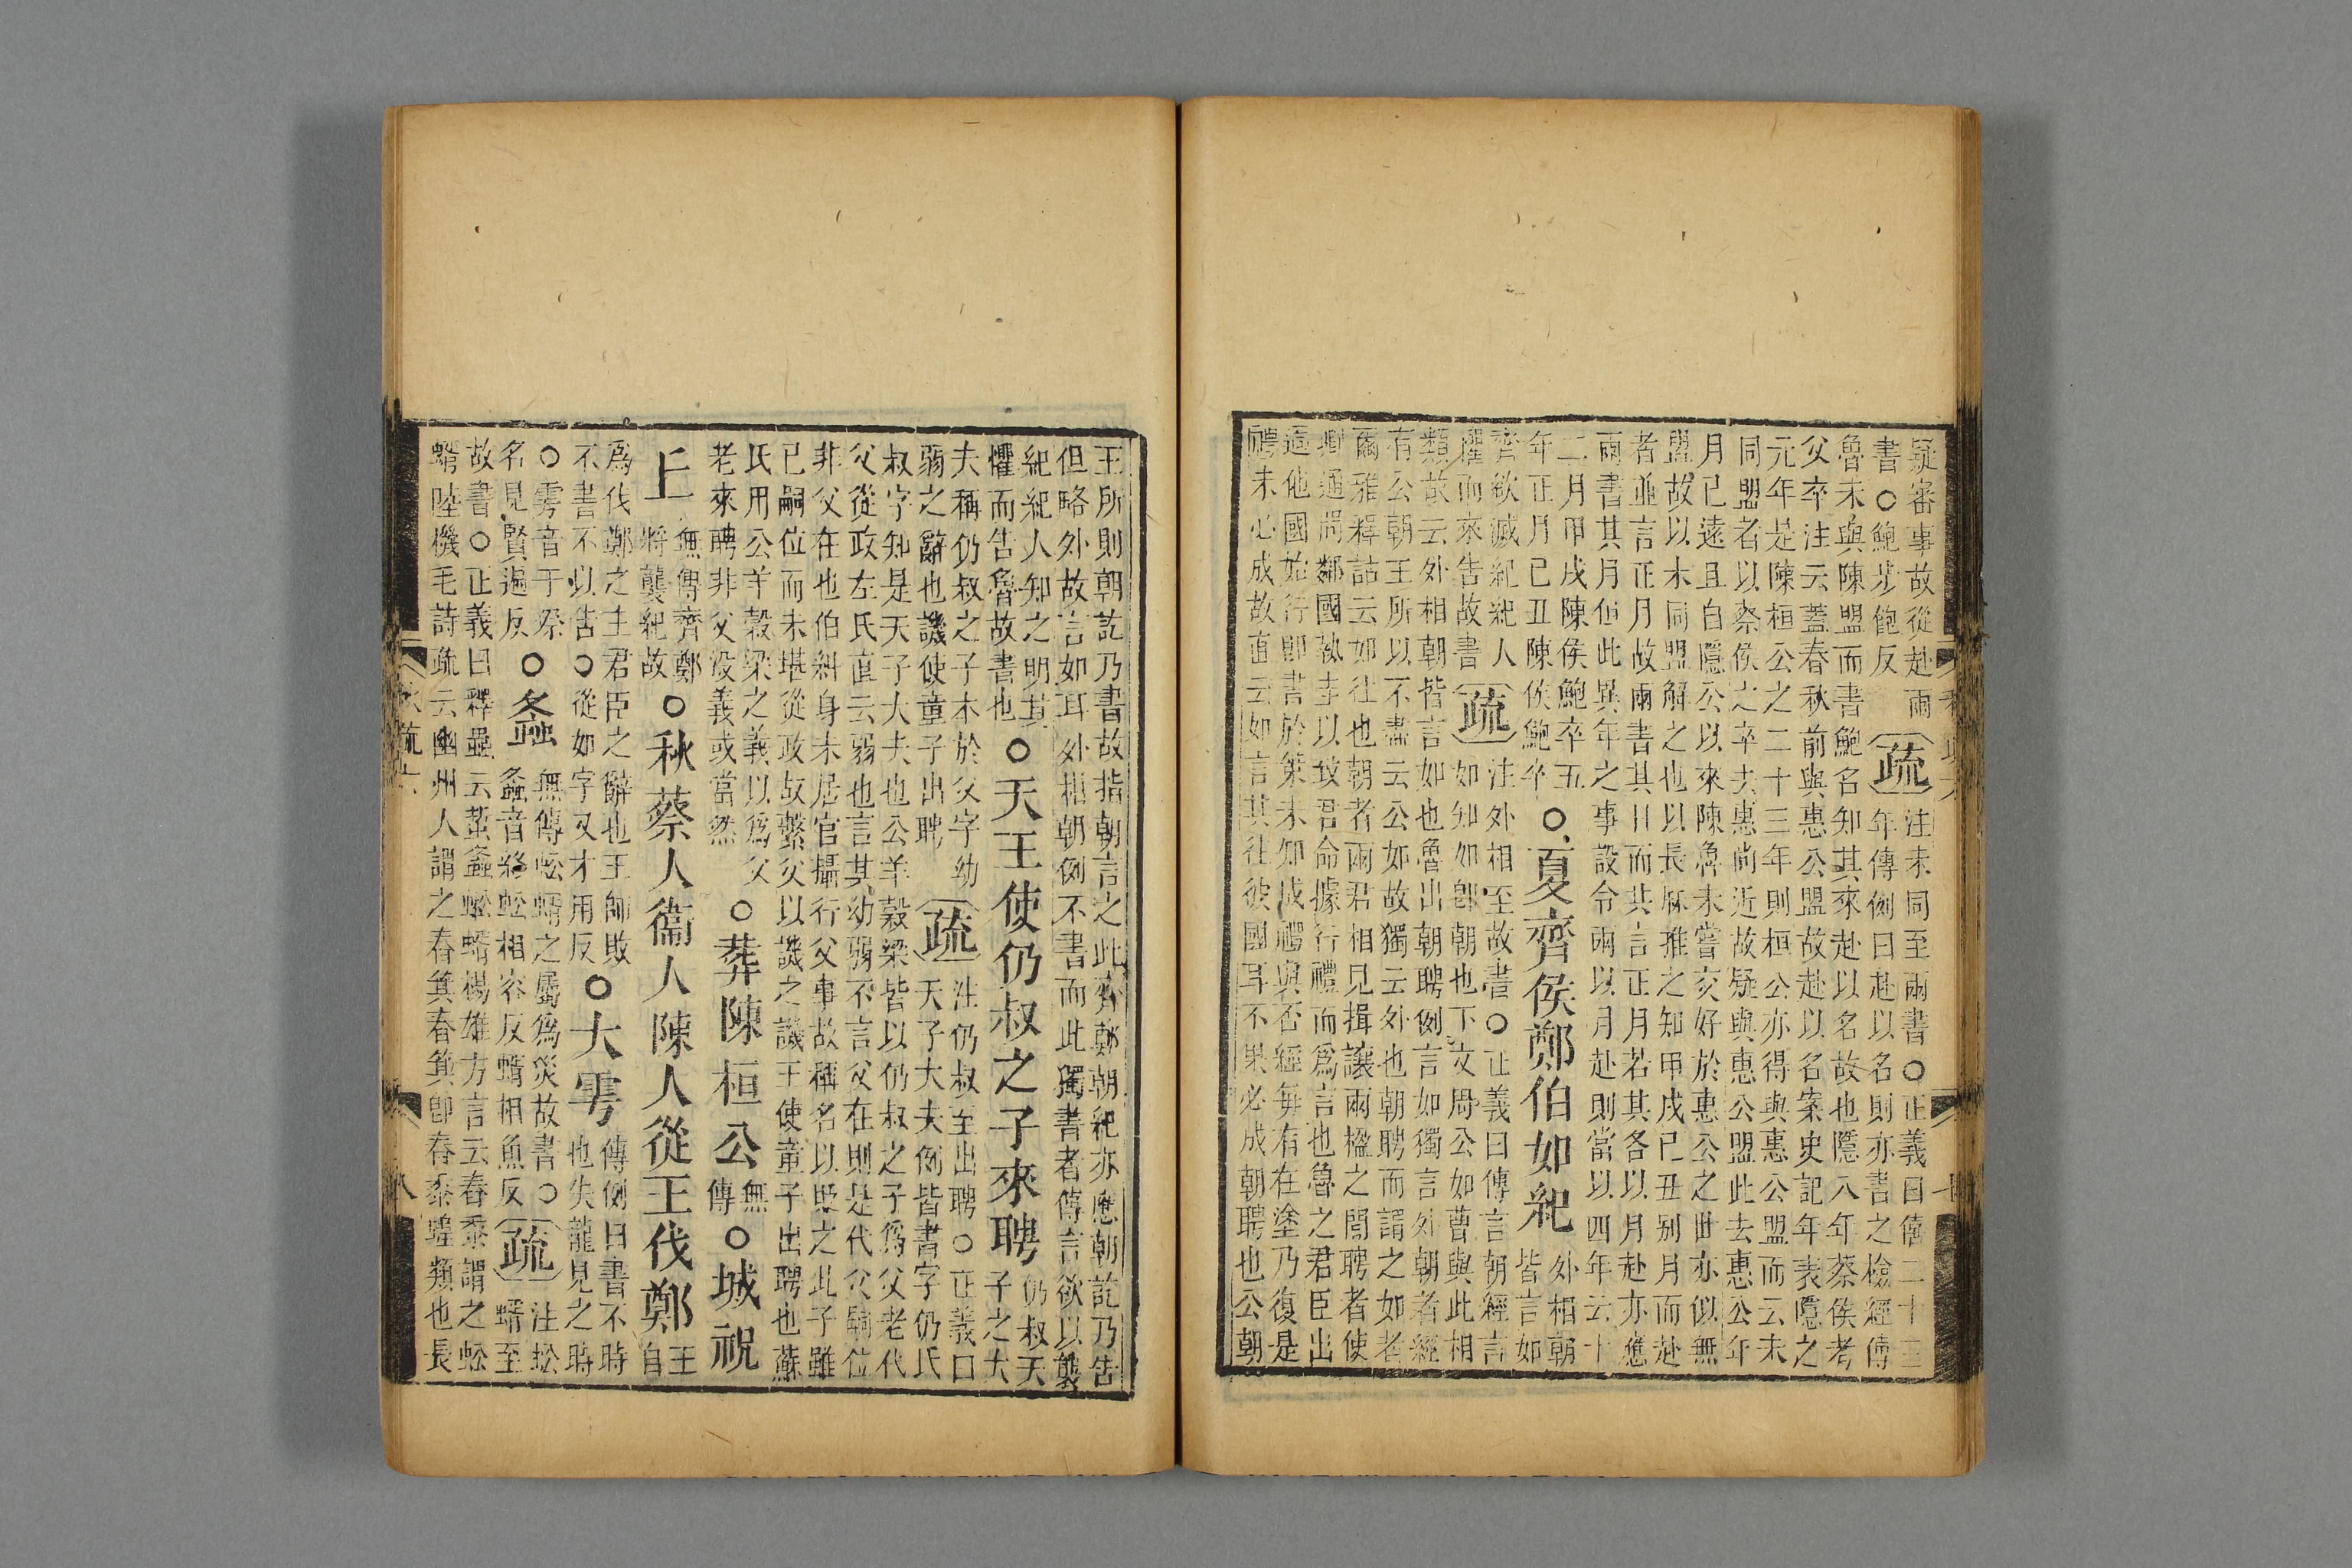 疑審事故從赴兩
書○鮑步飽反
疏
注未同至兩書○正義曰僖二十三
年傳例曰赴以名則亦書之檢經傳
魯未與陳盟而書鮑名知其來赴以名故也隱八年蔡侯考
父卒注云蓋春秋前與惠公盟故赴以名案史記年表隱之
元年是陳桓公之二十三年則桓公亦得與惠公盟而云未
同盟者以蔡侯之卒去惠尚近故疑與惠公盟此去惠公年
月已遠且自隱公以來陳魯未嘗交好於惠公之世亦似無
盟故以未同盟解之也以長厤推之知甲戌已丑别月而赴
者並言正月故兩書其日而共言正月若其各以月赴亦應
兩書其月但此異年之事設令兩以月赴則當以四年云十
二月甲戌陳侯鮑卒五
年正月已丑陳侯鮑卒
○夏齊侯鄭伯如紀
外相朝
皆言如
齊欲滅紀紀人
懼而來告故書
疏
注外相至故書○正義曰傳言朝經言
如知如卽朝也下文周公如曹與此相
類故云外相朝皆言如也魯出朝聘例言如獨言外朝者經
有公朝王所以不盡云公如故獨云外也朝聘而謂之如者
爾雅釋詁云如往也朝者兩君相見揖讓兩楹之間聘者使
卿通問鄰國執圭以致君命據行禮而爲言也魯之君臣出
適他國始行卽書於策未知成禮與否經每有在塗乃復是
禮未必成故直云如言其往彼國耳不果必成朝聘也公朝
王所則朝訖乃書故指朝言之此齊鄭朝紀亦應朝訖乃告
但略外故言如耳外相朝例不書而此獨書者傳言欲以襲
紀紀人知之明其
懼而告魯故書也
○天王使仍叔之子來聘
仍叔天
子之大
夫稱仍叔之子本於父字幼
弱之辭也譏使童子出聘
疏
注仍叔至出聘○正義曰
天子大夫例皆書字仍氏
叔字知是天子大夫也公羊穀梁皆以仍叔之子爲父老代
父從政左氏直云弱也言其幼弱不言父在則是代父嗣位
非父在也伯糾身未居官攝行父事故稱名以貶之此子雖
已嗣位而未堪從政故繫父以譏之譏王使童子出聘也蘇
氏用公羊穀梁之義以爲父
老來聘非父没義或當然
○葬陳桓公
無
傳
○城祝
丘
無傳齊鄭
將襲紀故
○秋蔡人衞人陳人從王伐鄭
王
自
爲伐鄭之主君臣之辭也王師敗
不書不以告○從如字又才用反
○大雩
傳例曰書不時
也失龍見之時
○雩音于祭
名見賢遍反
○螽
無傳蚣蝑之屬爲災故書○
螽音終蚣相容反蝑相魚反
疏
注蚣
蝑至
故書○正義曰釋蟲云蜤螽蚣蝑楊雄方言云舂黍謂之蚣
蝑陸機毛詩疏云幽州人謂之舂箕舂箕卽舂黍蝗類也長